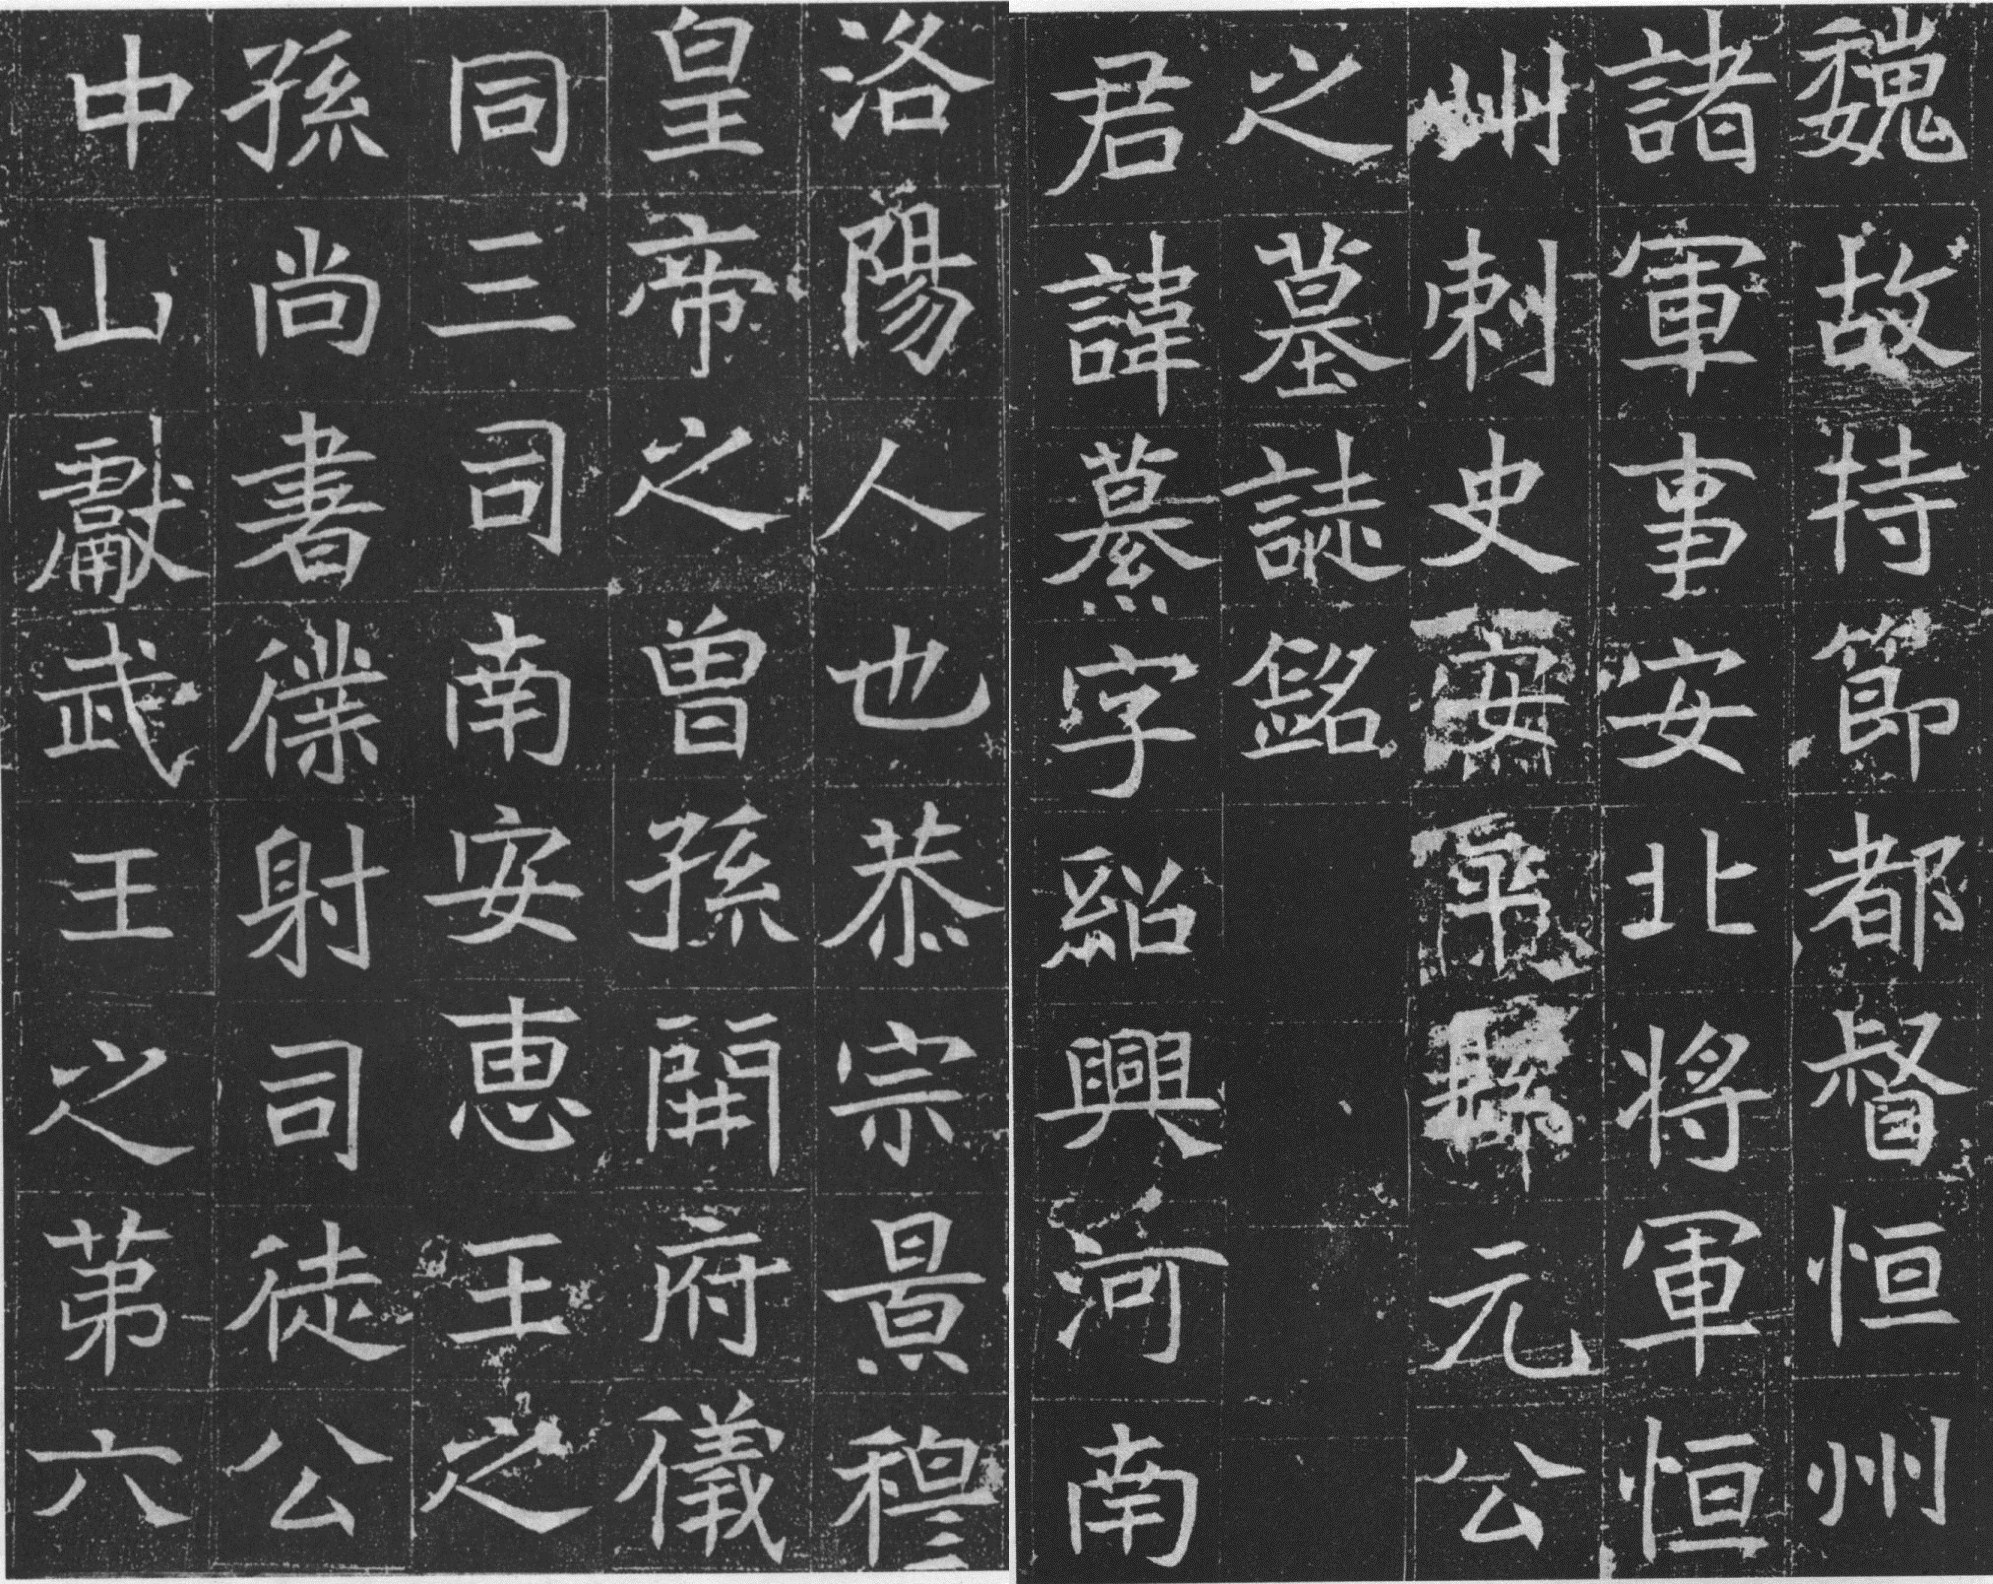 魏故持節都督恒州
諸軍事安北將軍恒
州刺史安平縣元公
之墓誌銘
君諱纂字紹興河南
洛陽人也恭宗景穆
皇帝之曾孫開府儀
同三司南安惠王之
孫尚書僕射司徒公
中山獻武王之第六